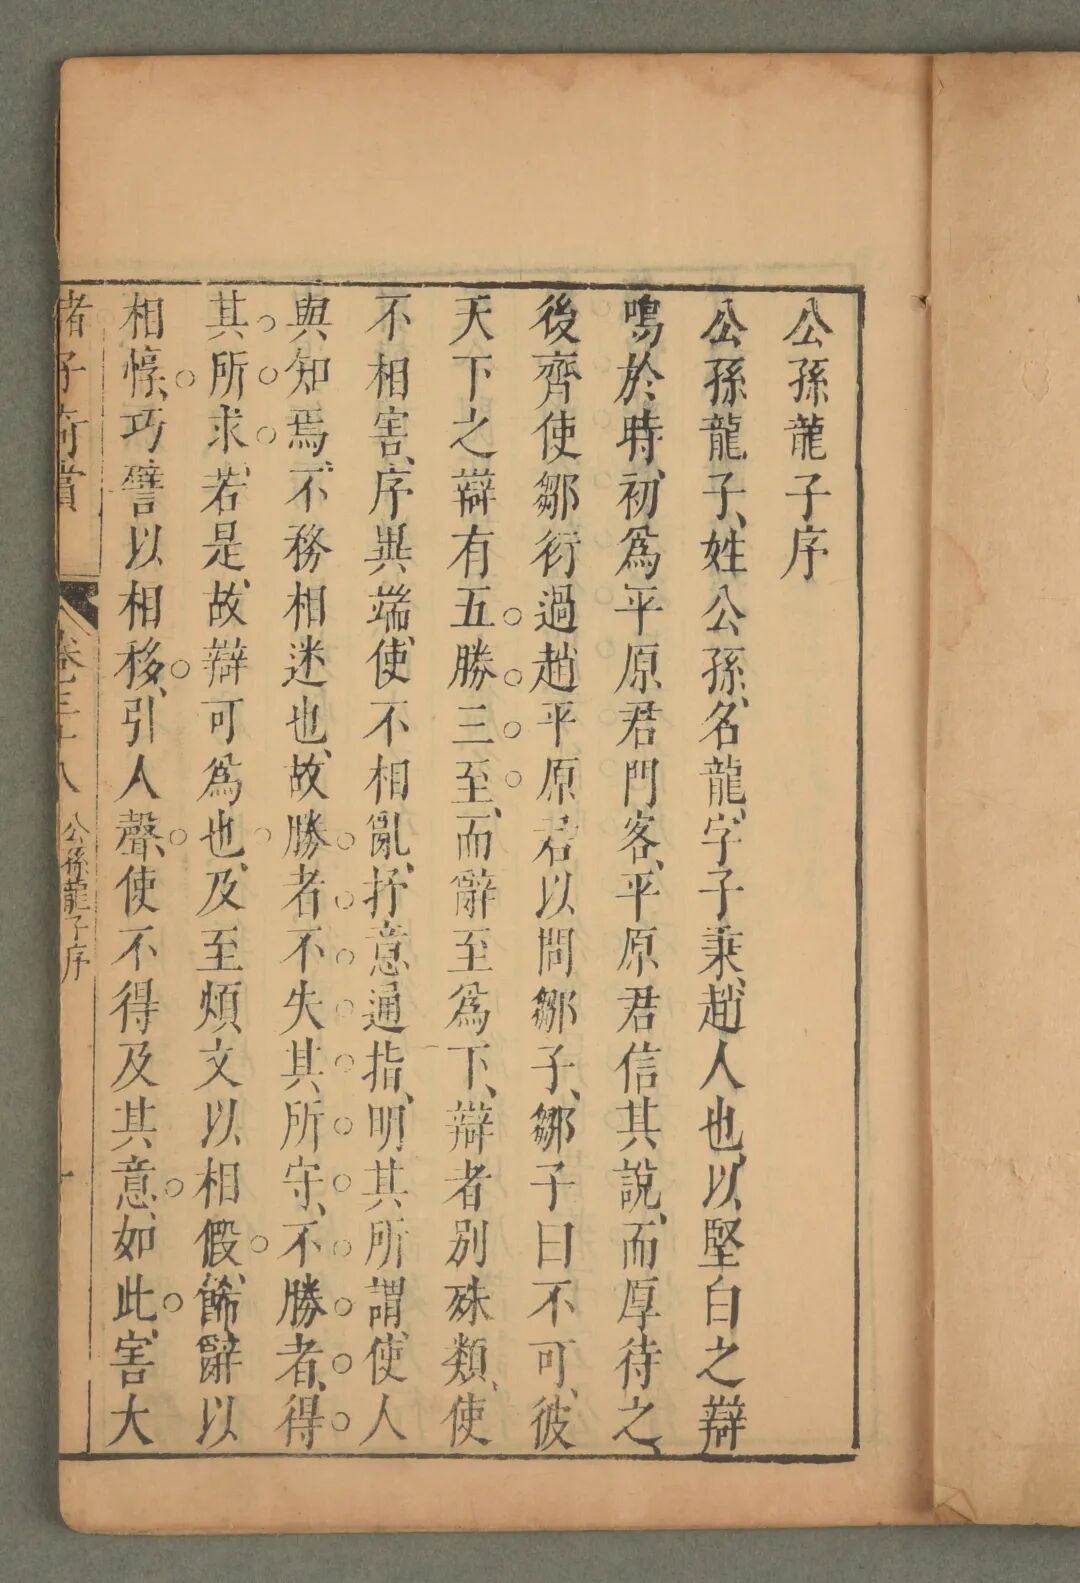 公孫龍子序
公孫龍子、姓公孫、名龍、字子秉、趙人也、以堅白之辯
鳴於時、初爲平原君門客、平原君信其說、而厚待之、
後齊使鄒衍過趙平原君以問鄒子、鄒子曰不可、彼
天下之辯有五勝三至、而辭至爲下、辯者別殊類、使
不相害、序異端、使不相亂、抒意通指、明其所謂、使人
與知焉、不務相迷也、故勝者不失其所守、不勝者、得
其所求、若是、故辯可爲也、及至煩文以相假、飾辭以
相惇、巧譬以相移、引人聲、使不得及其意、如此、害大
諸子奇賞
卷三十八
公孫龍子序
一